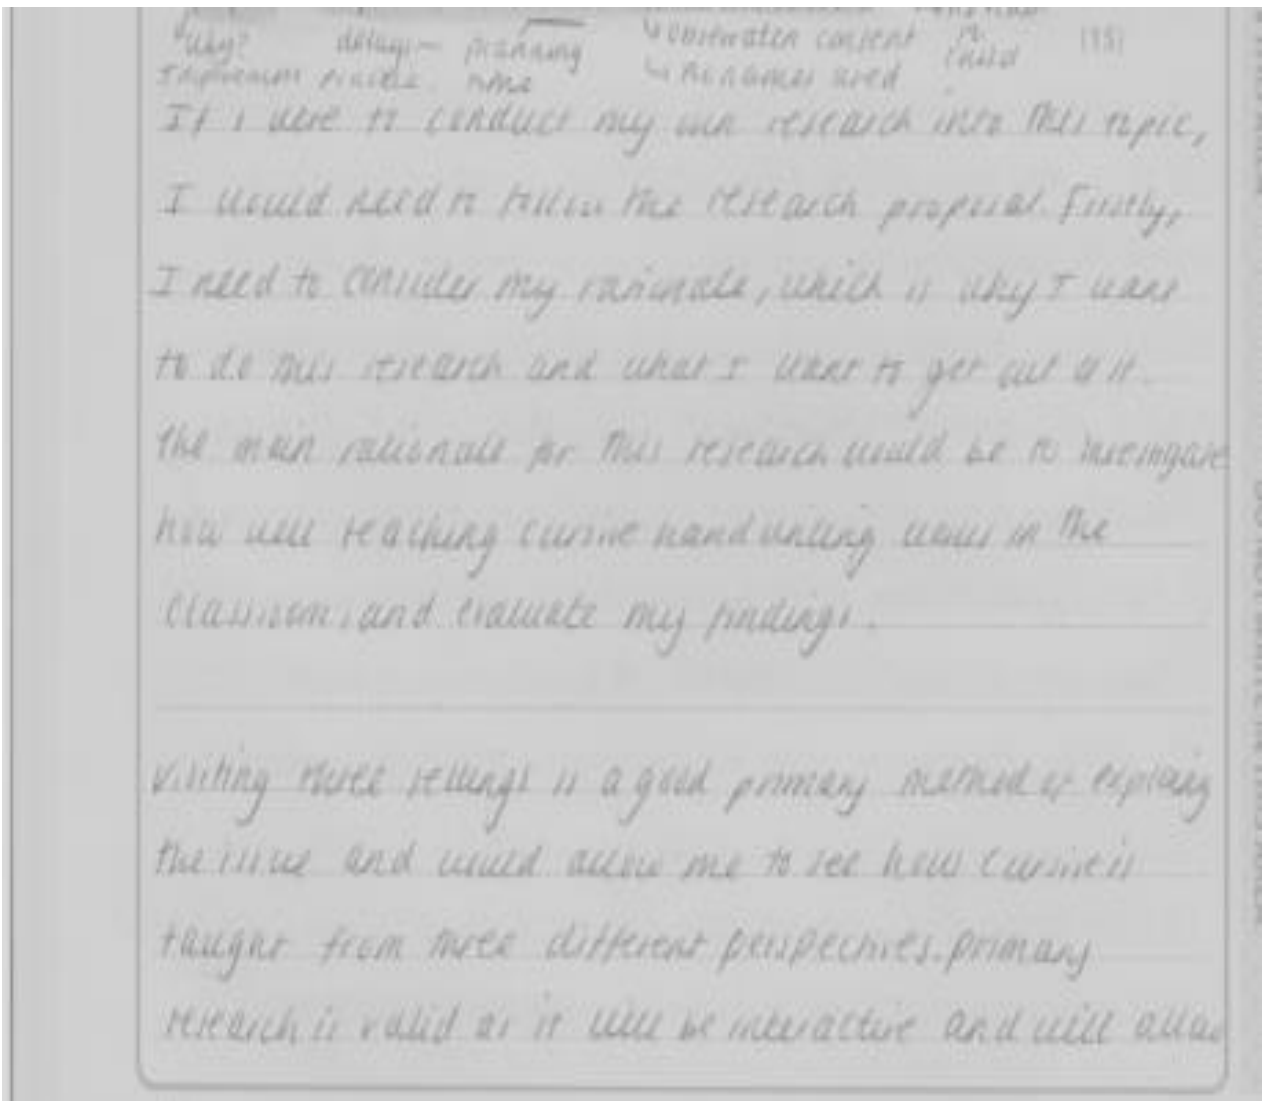 Why? delays – planning ↳ observation consent child (15)
time ↳ no names used
If i were to conduct my own research into this topic,
I would need to follow the research proposal. Firstly,
I need to consider my rationale, which is why I want
to do this research and what I want to get out of it.
the main rationale for this research would be to investigate
how well teaching cursive handwriting works in the
classroom, and evaluate my findings.
visiting three settings is a good primary method of exploring
the issue and would allow me to see how cursive is
taught from three different perspectives. primary
research is valid as it will be interactive and will allow